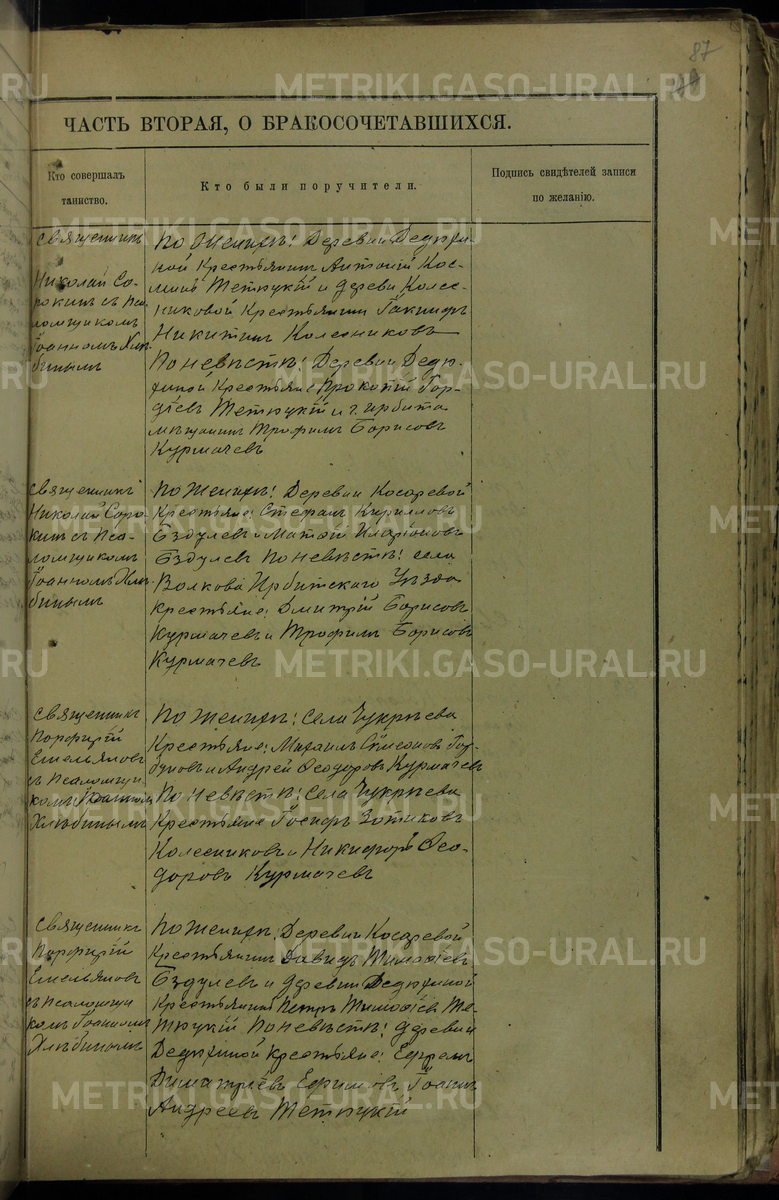 87
ЧАСТЬ ВТОРАЯ, О БРАКОСОЧЕТАВШИХСЯ.
Кто совершалъ
таинство.
Кто были поручители.
Подпись свидѣтелей записи
по желанію.
Священникъ
Николай Со-
рокинъ съ Пса-
ломщикомъ
Іоанномъ Хлѣ-
бинымъ
По Женихѣ: Деревни Дедюхи-
ной Крестьянинъ Антоній Кос-
минъ Тетюцкій и Деревни Колес-
никовой Крестьянинъ
Никитинъ Колесниковъ
По невѣстѣ: Деревни Дедю-
хиной Крестьяне Прокопій Гор-
дѣевъ Тетюцкій и г. Ирбита
мѣщанинъ Трофимъ Борисовъ
Курмачевъ
Священникъ
Николай Соро-
кинъ съ Пса-
ломщикомъ
Іоанномъ Хлѣ-
бинымъ
По Женихѣ: Деревни Косаревой
Крестьяне: Стефанъ Кирилловъ
Бздулевъ и Матѳій Иларіоновъ
Бздулевъ По невѣстѣ: села
Волкова Ирбитскаго Уѣзда
крестьяне: Дмитрій Борисовъ
Курмачевъ и Трофимъ Борисовъ
Курмачевъ
Священникъ
Порфирій
Емельяновъ
съ Псаломщи-
комъ Іоанномъ
Хлѣбинымъ
По Женихѣ: Села Чукрѣева
Крестьяне: Михаилъ Симеоновъ Гор-
буновъ и Андрей Ѳеодоровъ Курмачевъ
По невѣстѣ: Села Чукрѣева
Крестьяне Іосифъ Зотиковъ
Колесниковъ и Никифоръ Ѳео-
доровъ Курмачевъ
Священникъ
Порфирій
Емельяновъ
съ Псаломщи-
комъ Іоанномъ
Хлѣбинымъ
По Женихѣ: Деревни Косаревой
Крестьянинъ Давидъ Тимоѳеевъ
Бздулевъ и Деревни Дедюхиной
Крестьянинъ Петръ Тимоѳеевъ Те-
тюцкій По невѣстѣ: Деревни
Дедюхиной Крестьяне: Ефремъ
Ефимовъ Іоаннъ
Андреевъ Тетюцкій
METRIKI.GASO-URAL.RU